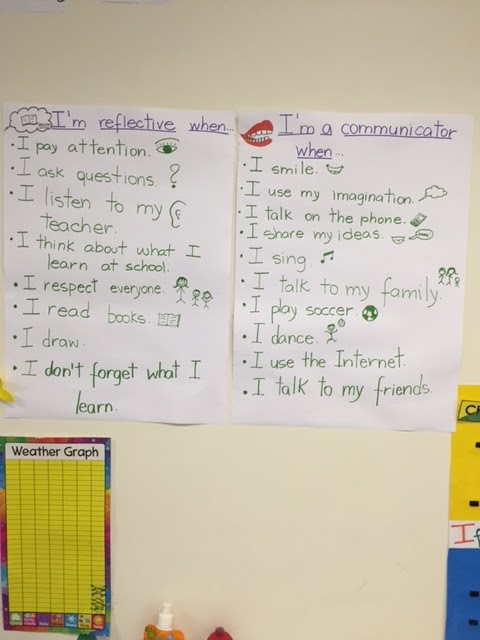 I'm reflective when...
• I pay attention.
• I ask questions. ?
• I listen to my
teacher.
• I think about what I
learn at school.
• I respect everyone.
• I read books.
• I draw.
• I don't forget what I
learn.
I'm a communicator
when...
• I smile.
• I use my imagination.
• I talk on the phone.
• I share my ideas.
• I sing.
• I talk to my family.
• I play soccer.
• I dance.
• I use the Internet.
• I talk to my friends.
Weather Graph
I